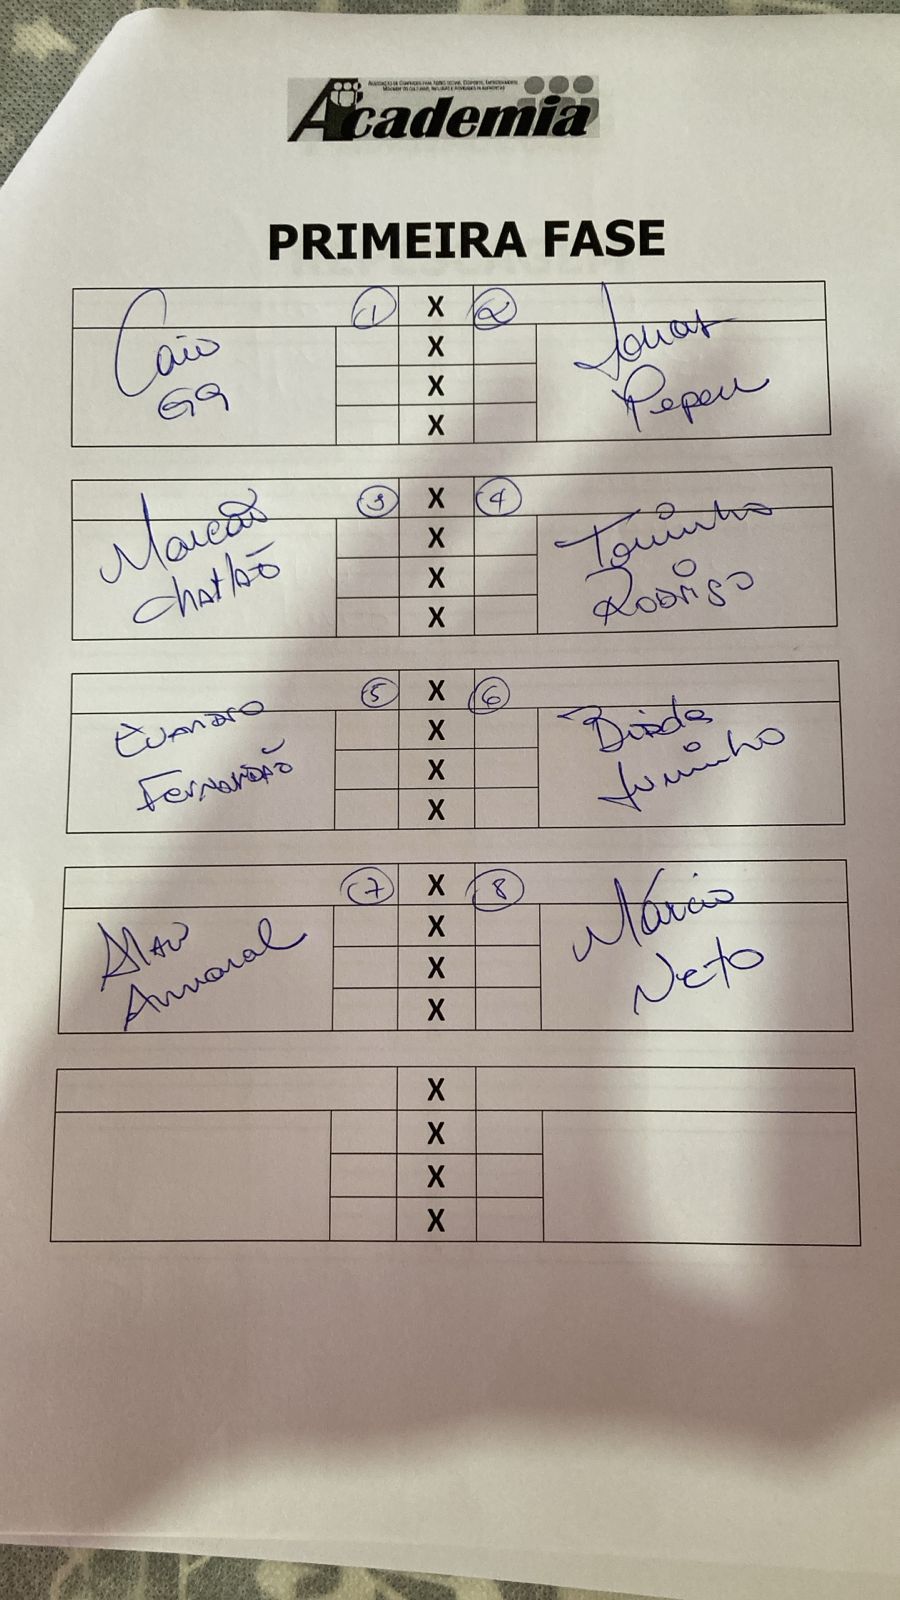 Academia
PRIMEIRA FASE
1 X 2
Caio X Jonas
GG X Pepeu
X
3 X 4
Marcão X Toninho
Chatão X Rodrigo
X
5 X 6
Evandro X
Fernandão X Juninho
X
7 X 8
Alan X Márcio
Amaral X Neto
X
X
X
X
X